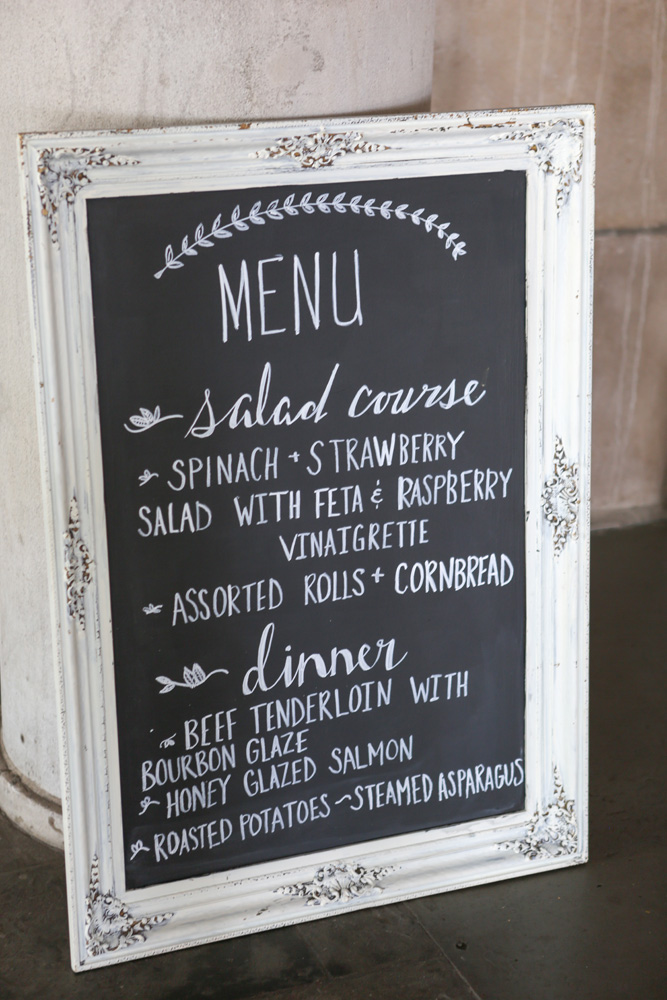 MENU
salad course
SPINACH + STRAWBERRY
SALAD WITH FETA & RASPBERRY
VINAIGRETTE
ASSORTED ROLLS + CORNBREAD
dinner
BEEF TENDERLOIN WITH
BOURBON GLAZE
HONEY GLAZED SALMON
ROASTED POTATOES ~STEAMED ASPARAGUS